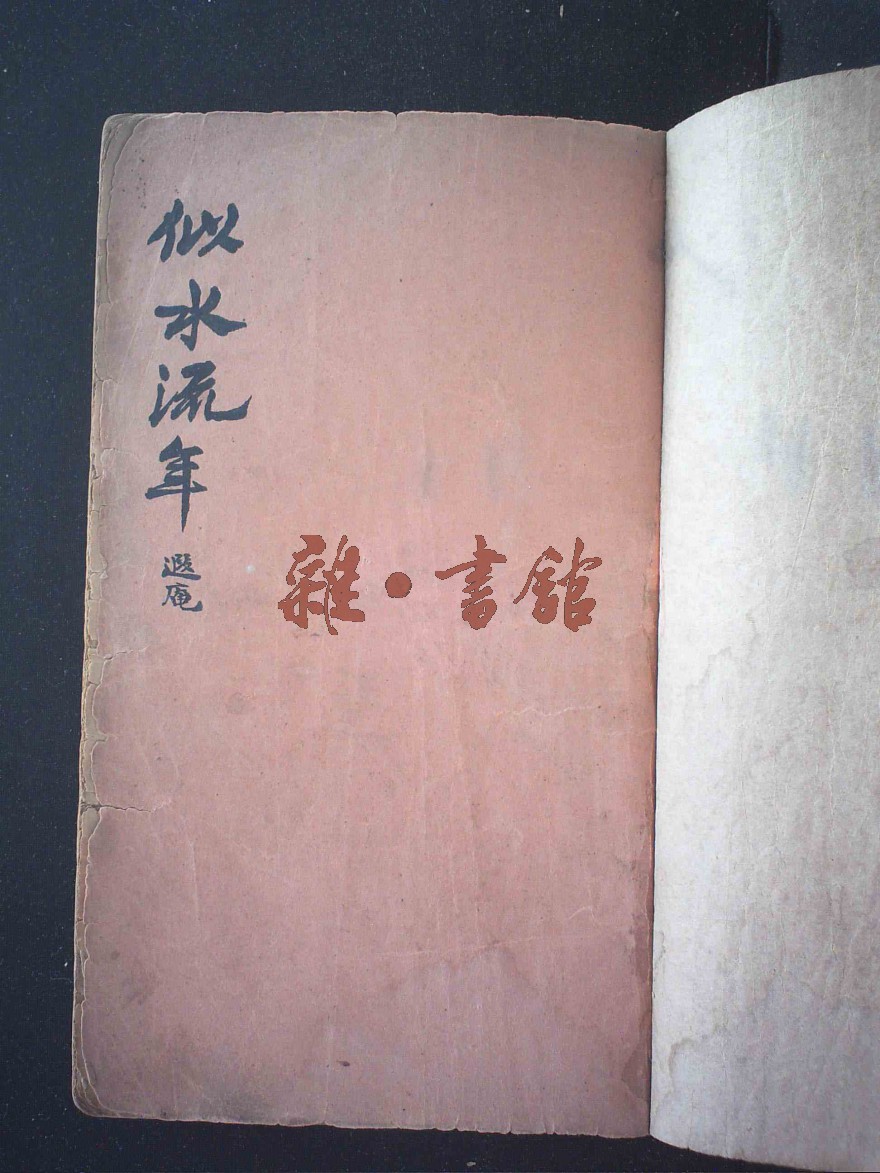 似水流年
遐庵
雜·書舘